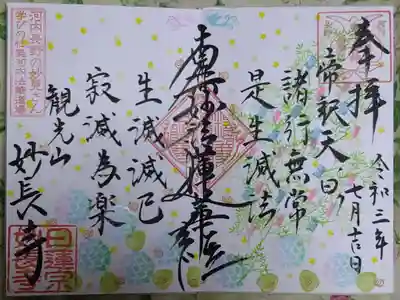 奉拝
令和三年
七月吉日
帝釈天曰
諸行無常
是生滅法
南無妙法蓮華経
生滅滅已
寂滅為楽
観光山
妙長寺
河内長野の妙見さん
学びの
日蓮宗
妙長寺